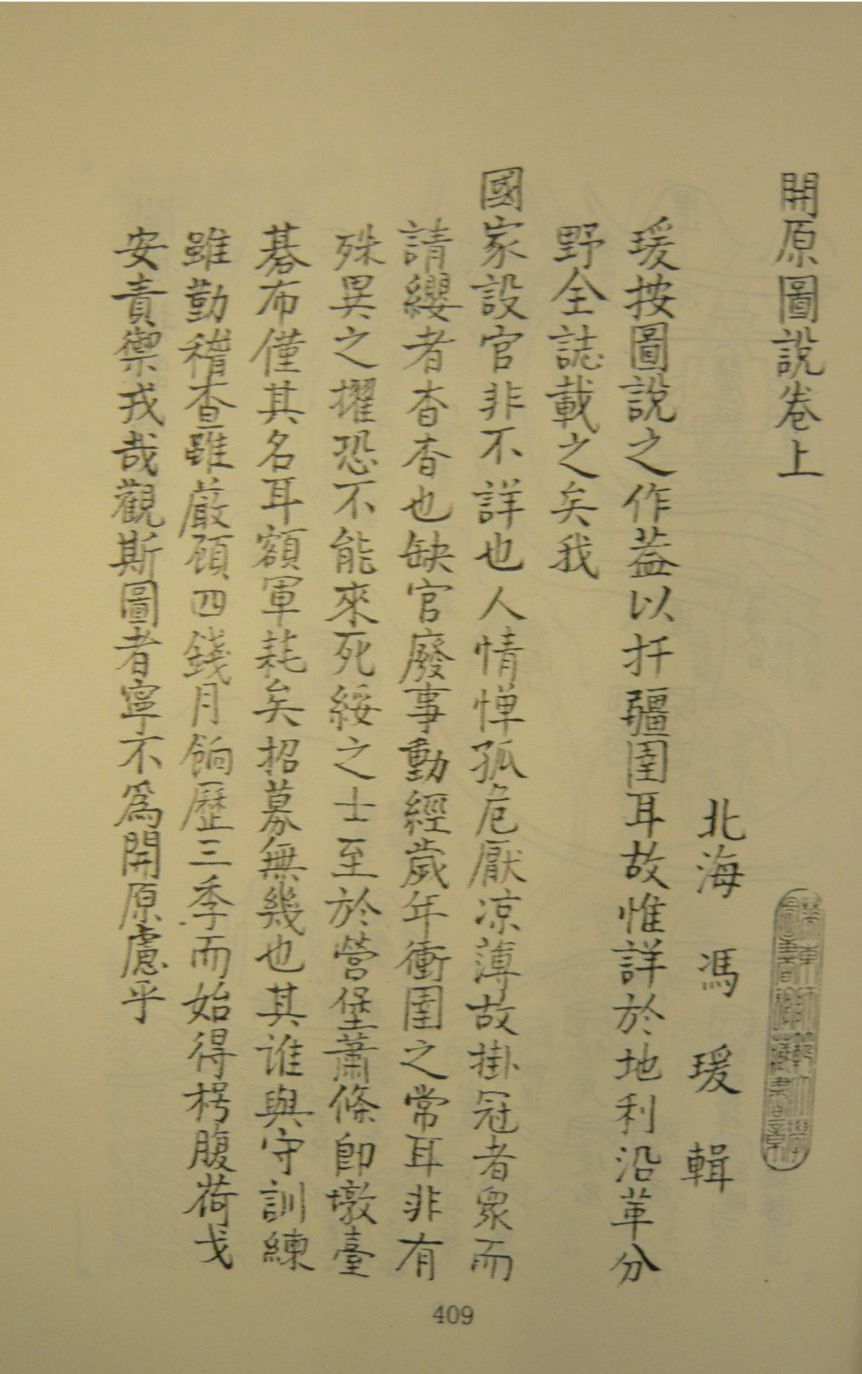 開原圖說卷上
北海 馮 瑗 輯
瑗按圖說之作葢以扞疆圉耳故惟詳於地利沿革分
野全誌載之矣我
國家設官非不詳也人情憚孤危厭凉薄故掛冠者衆而
請纓者杳杳也缺官廢事動經歲年衝圉之常耳非有
殊異之擢恐不能來死綏之士至於營堡蕭條卽墩臺
碁布僅其名耳額軍耗矣招募無幾也其谁與守訓練
雖勤稽查雖嚴顧四錢月餉歷三季而始得枵腹荷戈
安責禦戎哉觀斯圖者寧不爲開原慮乎
409